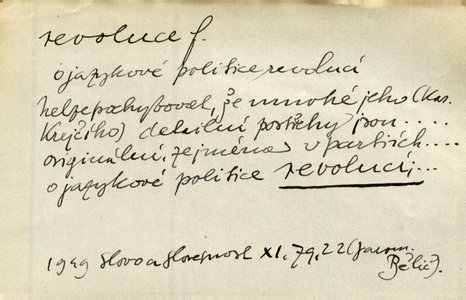 revoluce f.
o jazykové politice revolucí
nelze pochybovat, že mnohé jeho (Kar.
Krejčího) detailní postřehy json....
originální, zejména v partiích....
o jazykové politice revolucí;...
1949 Slovo a slovesnost XI, 79, 22 (Jarom.
Bělič).